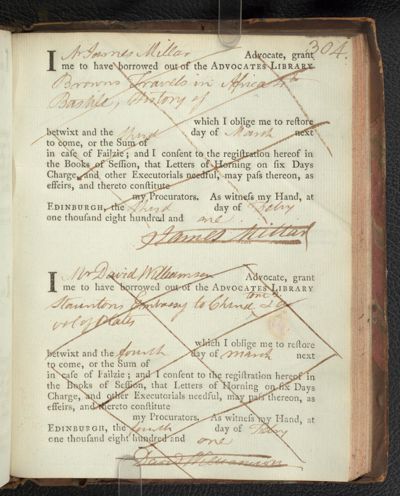 304.
I Mr James Millar Advocate, grant
me to have borrowed out of the ADVOCATES LIBRARY
Browns Travels in Africa 4to
History of
which I oblige me to restore
betwixt and the third day of March next
to come, or the Sum of
in case of Failzie; and I consent to the registration hereof in
the Books of Session, that Letters of Horning on six Days
Charge, and other Executorials needful, may pass thereon, as
effeirs, and thereto constitute
my Procurators. As witness my Hand, at
EDINBURGH, the third day of Febry
one thousand eight hundred and one.
James Millar
I Mr David Williamson Advocate, grant
me to have borrowed out of the ADVOCATES LIBRARY
Stauntons Embassy to China
vol of Plates
which I oblige me to restore
betwixt and the fourth day of March next
to come, or the Sum of
in case of Failzie; and I consent to the registration hereof in
the Books of Session, that Letters of Horning on six Days
Charge, and other Executorials needful, may pass thereon, as
effeirs, and thereto constitute
my Procurators. As witness my Hand, at
EDINBURGH, the fourth day of Febry
one thousand eight hundred and one
David Williamson